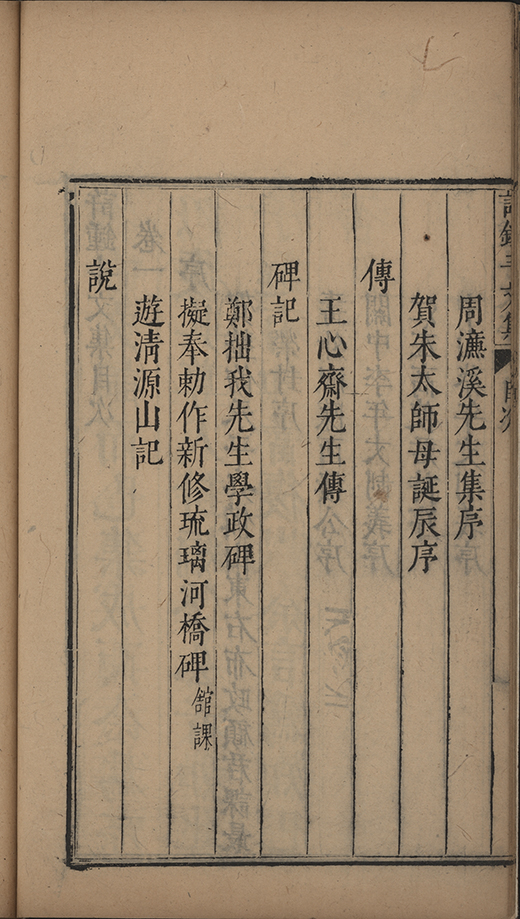 周濂溪先生集序
賀朱太師母誕辰序
傳
王心齋先生傳
碑記
鄭拙我先生學政碑
擬奉勅作新修琉璃河橋碑 館課
遊清源山記
說